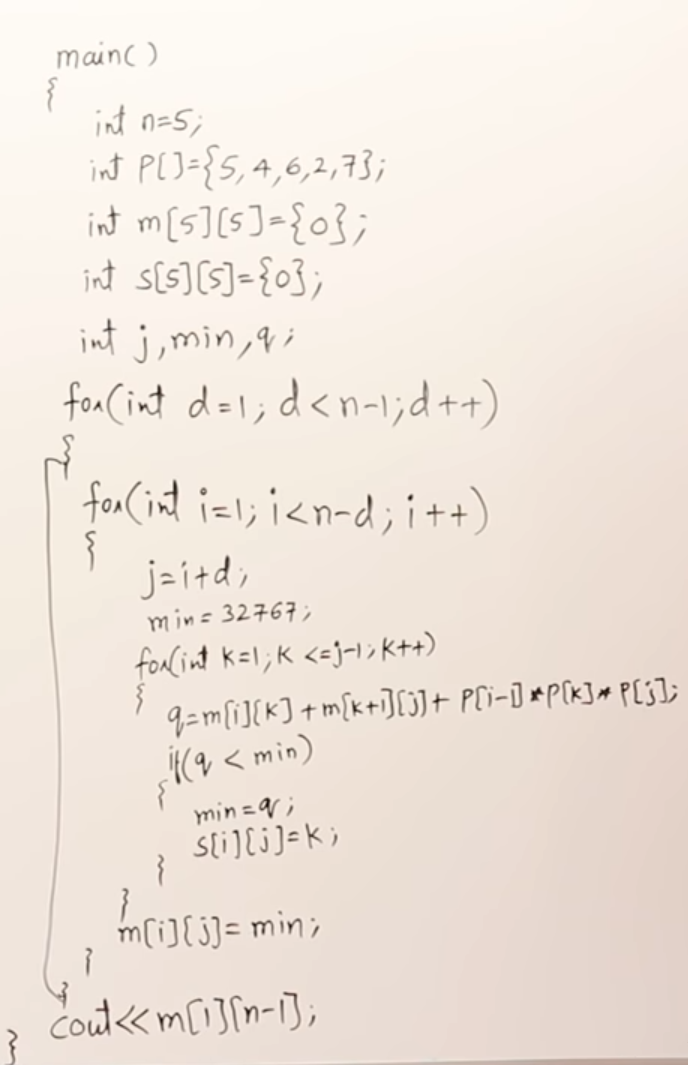 main()
{
int n=5;
int P[]={5,4,6,2,7};
int m[5][5]={0};
int s[5][5]={0};
int j,min,q;
for(int d=1; d<n-1;d++)
{
for(int i=1; i<n-d; i++)
{
j=i+d;
min=32767;
for(int k=1;k <=j-1;k++)
{
q=m[i][k]+m[k+1][j]+P[i-1]*P[k]*P[j];
if(q < min)
{
min=q;
s[i][j]=k;
}
}
m[i][j]=min;
}
}
cout<<m[1][n-1];
}